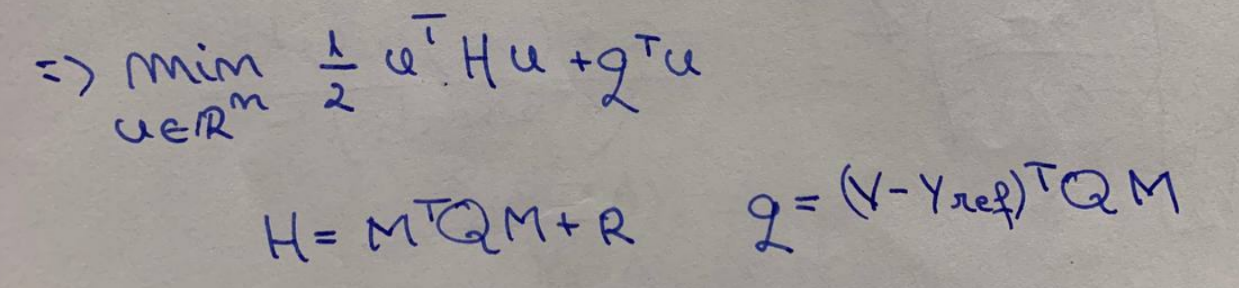 => min 1/2 uᵀ Hu + qᵀu
u∈ℝⁿ
H = MᵀQM + R q = (Y - Yref)ᵀQM